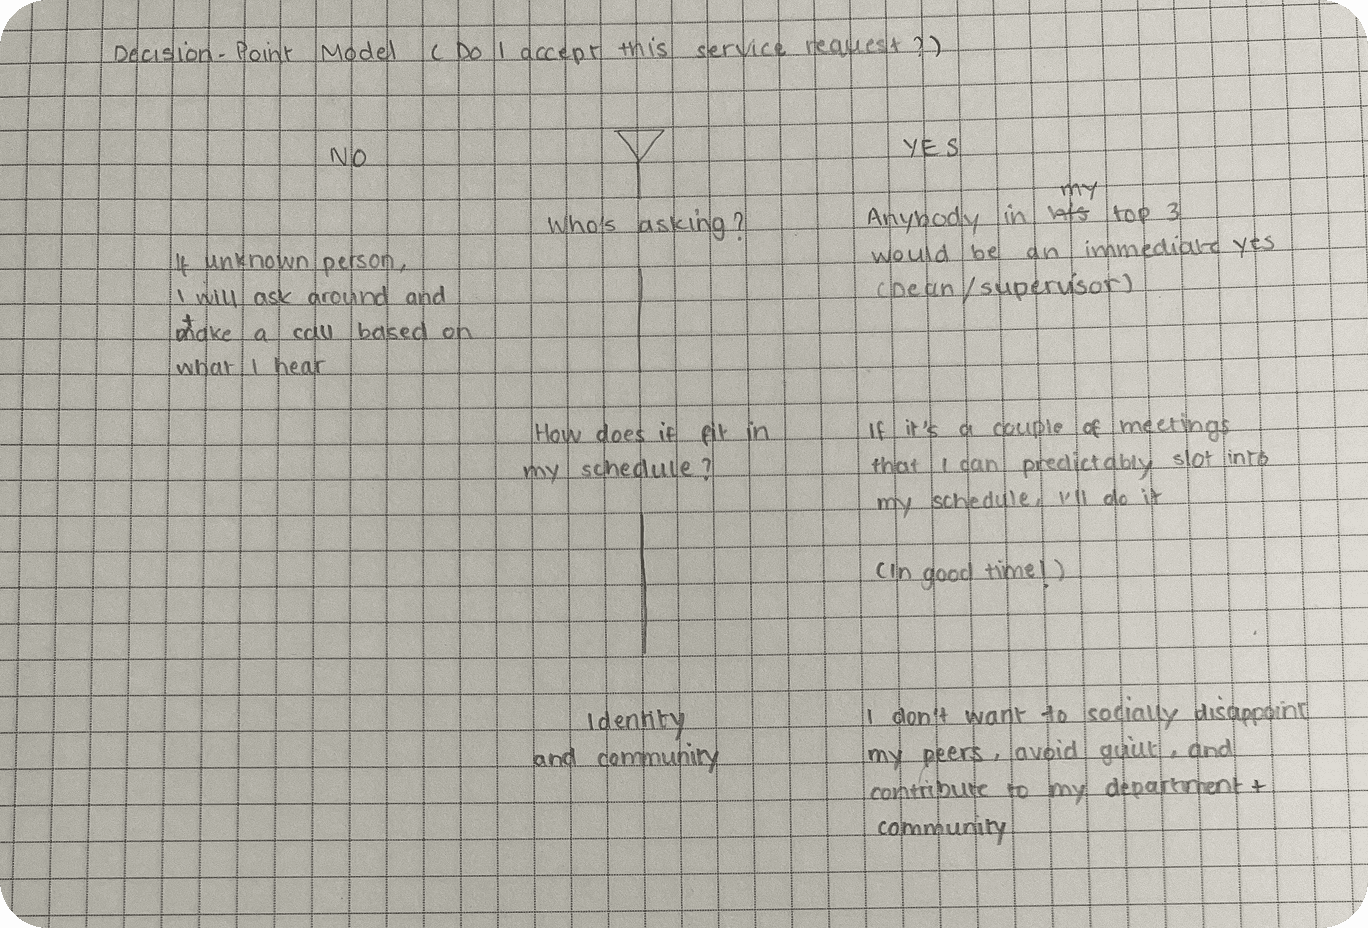 Decision-Point Model (Do I accept this service request?)
NO
YES
Who's asking?
my
Anybody in top 3
would be an immediate yes
(Dean/supervisor)
If unknown person,
I will ask around and
make a call based on
what I hear
How does it fit in
my schedule?
If it's a couple of meetings
that I can predictably slot into
my schedule, I'll do it
(In good time!)
Identity
and community
I don't want to socially disappoint
my peers, avoid guilt, and
contribute to my department +
community